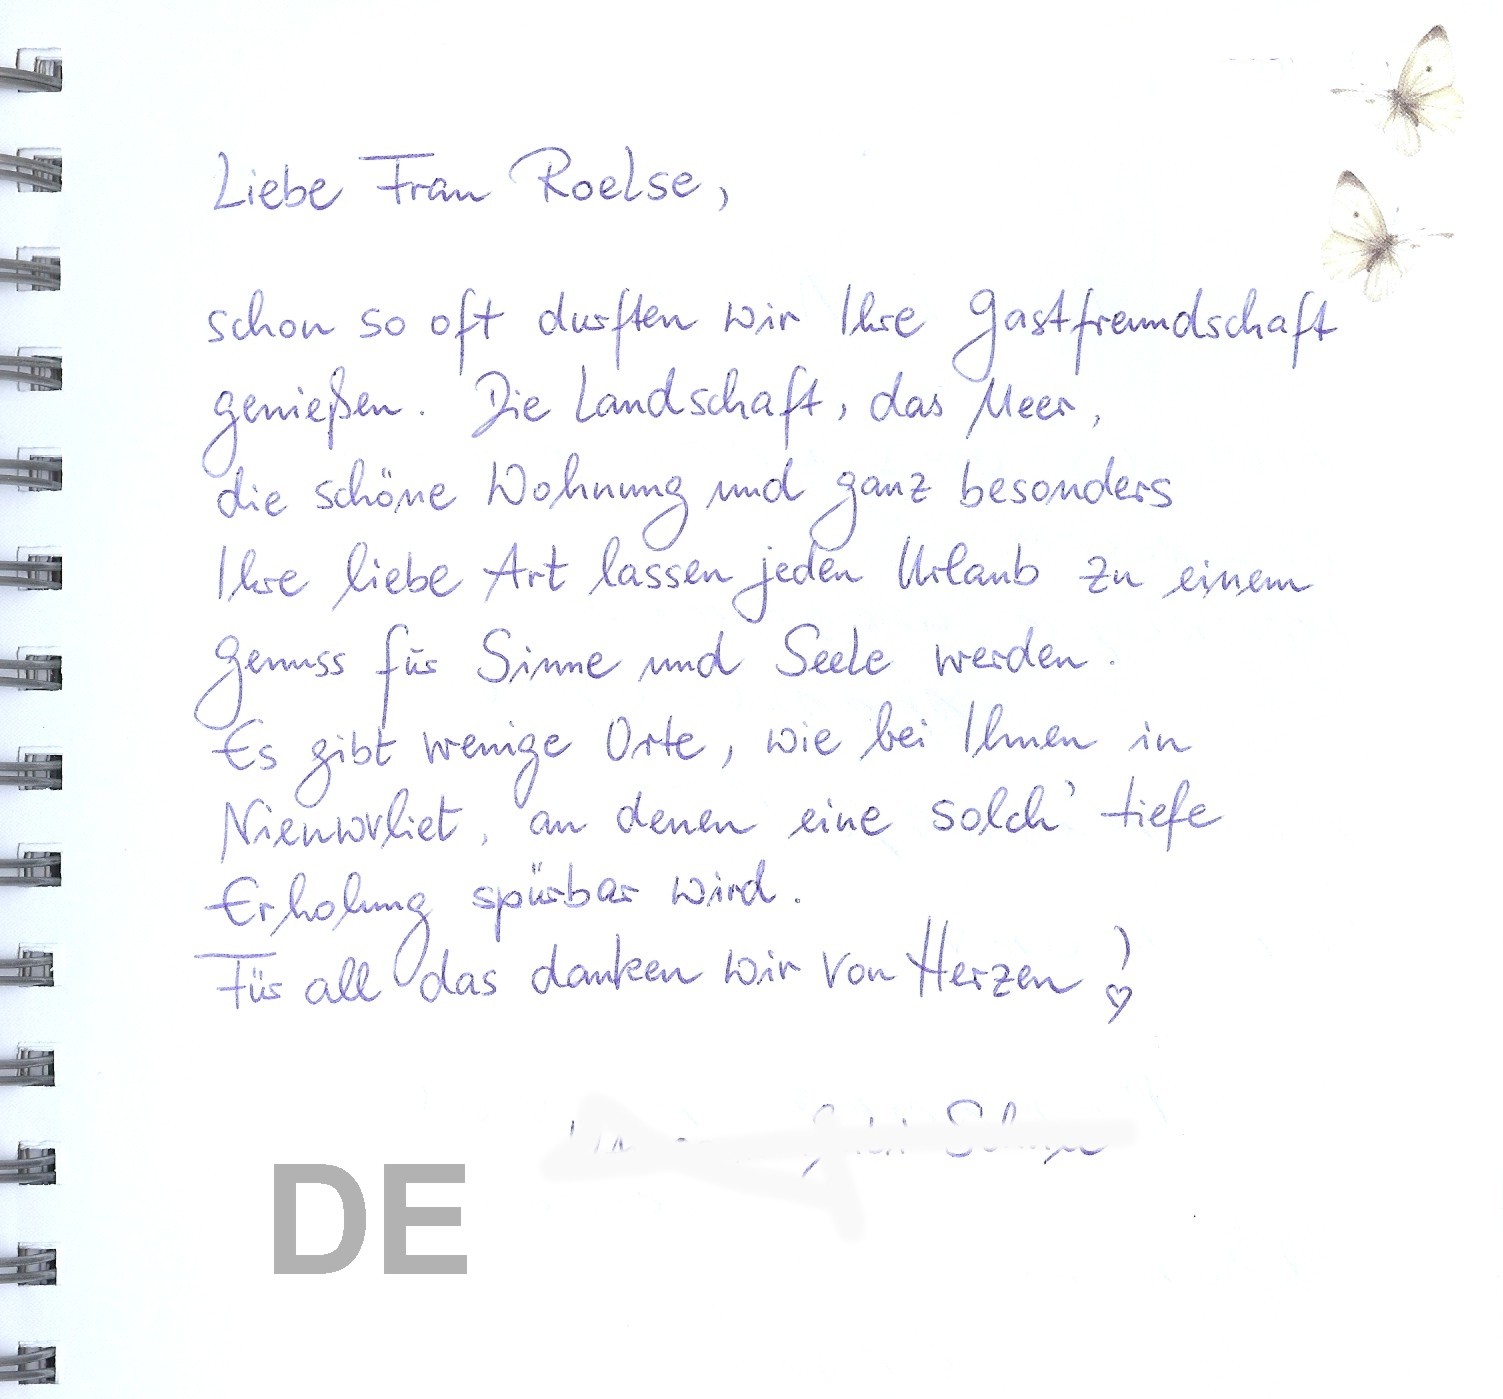 Liebe Frau Roelse,
schon so oft durften wir Ihre Gastfreundschaft
genießen. Die Landschaft, das Meer,
die schöne Wohnung und ganz besonders
Ihre liebe Art lassen jeden Urlaub zu einem
Genuss für Sinne und Seele werden.
Es gibt wenige Orte, wie bei Ihnen in
Nieuwvliet, an denen eine solch' tiefe
Erholung spürbar wird.
Für all das danken wir von Herzen!
DE